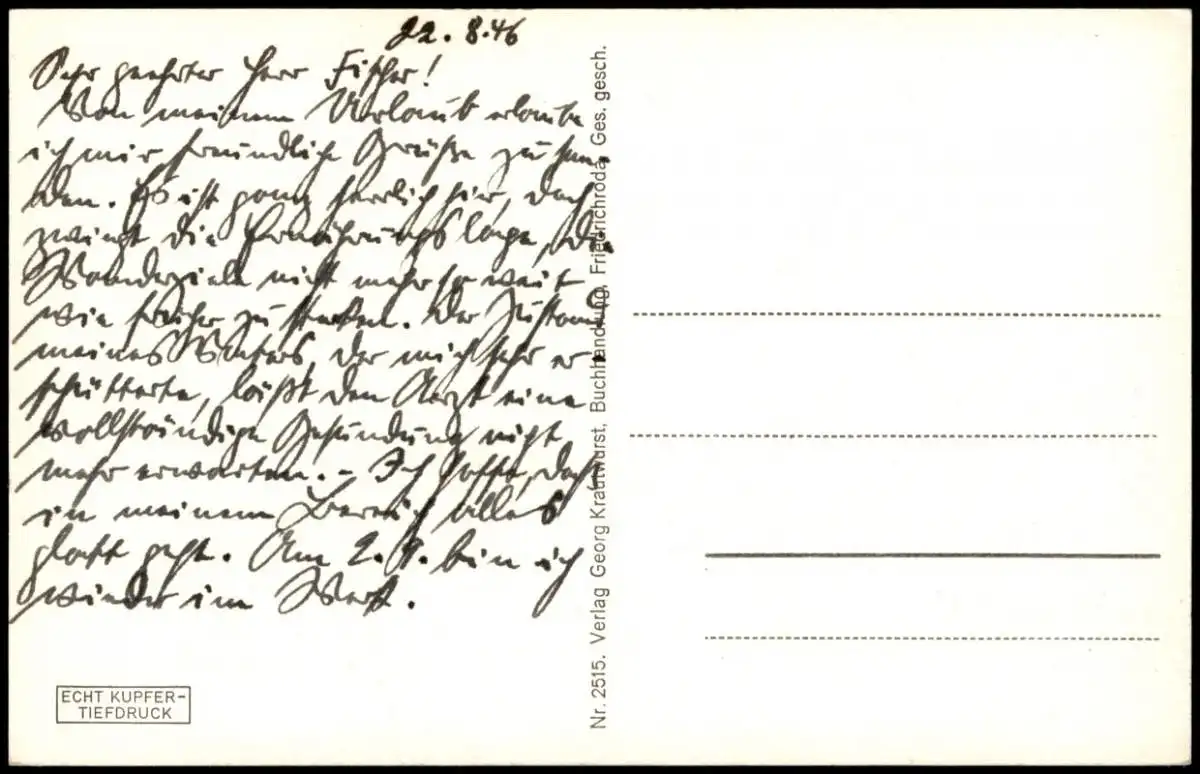 22.8.46
Sehr geehrter Herr Fischer!
Von meinem Urlaub erlaube
ich mir, freundliche Grüße zu sen-
den. Es ist ganz herrlich hier, doch
zwingt die Ernährungslage, die
Wanderziele nicht mehr so weit
wie früher zu stecken. Der Zustand
meines Vaters, der mich sehr er-
schütterte, läßt den Arzt eine
vollständige Gesundung nicht
mehr erwarten. – Ich hoffe, daß
in meinem Bereich alles
glatt geht. Am 2.9. bin ich
wieder im Werk.
Nr. 2515. Verlag Georg Krautwurst, Buchhandlung, Friedrichroda. Ges. gesch.
ECHT KUPFER-
TIEFDRUCK